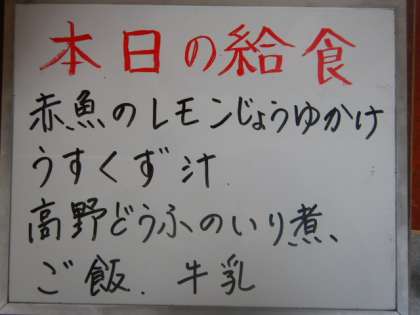 本日の給食
赤魚のレモンじょうゆかけ
うすくず汁
高野どうふのいり煮、
ご飯. 牛乳